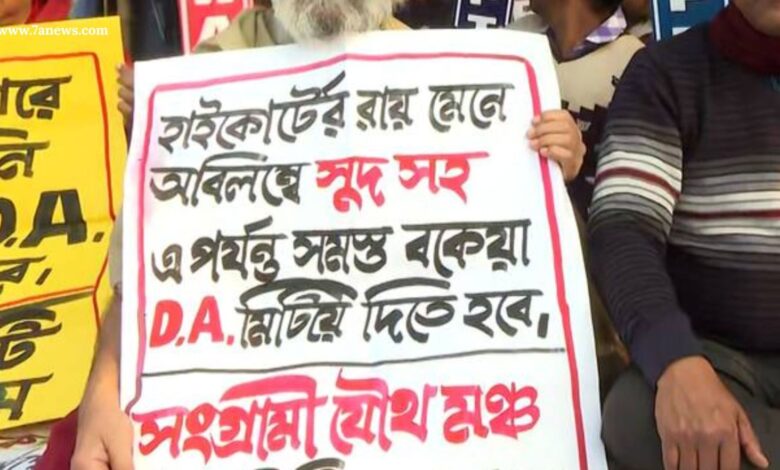 www.7anews.com
হাইকোর্টের রায় মেনে
অবিলম্বে সুদ সহ
এ পর্যন্ত সমস্ত বকেয়া
D.A. মিটিয়ে দিতে হবে,
সংগ্রামী যৌথ মঞ্চ
D.A.